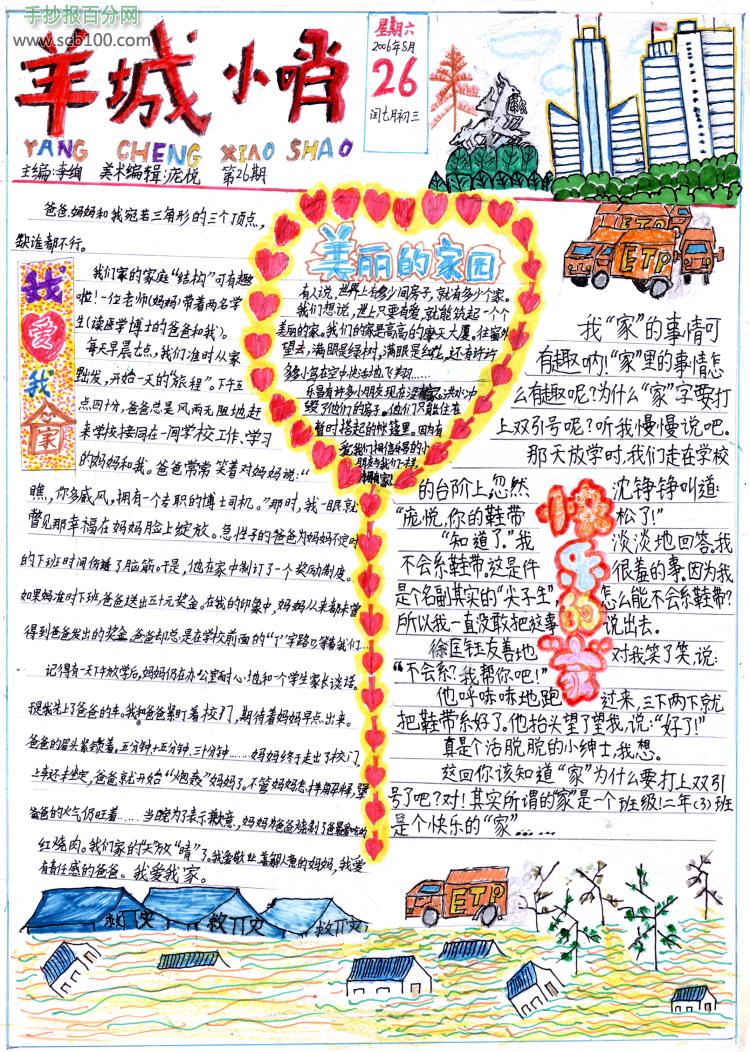 手抄报百分网
www.scb100.com
羊城小哨
YANG CHENG XIAO SHAO
主编:李绚 美术编辑:庞悦 第26期
星期六
2006年8月
26
闰七月初三
爸爸、妈妈和我宛若三角形的三个顶点,
缺谁都不行。
我爱我家
我们家的家庭“结构”可有趣
啦!一位老师(妈妈)带着两名学
生(读医学博士的爸爸和我)。
每天早晨七点,我们准时从家
出发,开始一天的“旅程”。下午五
点四十分,爸爸总是风雨无阻地赶
来学校接同在一间学校工作、学习
的妈妈和我。爸爸常常笑着对妈妈说:“
瞧,你多威风,拥有一个专职的博士司机。”那时,我一眼就
瞥见那幸福在妈妈脸上绽放。急性子的爸爸为妈妈不定时
的下班时间伤透了脑筋。于是,他在家中制订了一个奖励制度。
如果妈妈准时下班,爸爸送出五十元奖金。在我的印象中,妈妈从来都未曾
得到爸爸发出的奖金。爸爸却总是在学校前面的“丁”字路口等着我们…
记得有一天下午放学后,妈妈仍在办公室耐心地和一个学生家长谈话。
我先上了爸爸的车。我和爸爸紧盯着校门,期待着妈妈早点出来。
爸爸的眉头紧锁着。五分钟、十五分钟、三十分钟……妈妈终于走出了校门,
上车还未坐定,爸爸就开始“炮轰”妈妈了。不管妈妈怎样解释,
爸爸的火气仍旺着……当晚,为了表示歉意,妈妈为爸爸烧制了爸爸最爱吃的
红烧肉。我们家的天放“晴”了。我爱敬业、善解人意的妈妈,我爱
有责任感的爸爸。我爱我家。
美丽的家园
有人说,世界上有多少间房子,就有多少个家。
我们想说,世上只要有爱,就能筑起一个个
美丽的家。我们的家是高高的摩天大厦。往窗外
望去,满眼是绿树,满眼是红花,还有许许
多多小鸟在空中快活地飞来飞……
乐昌有许多小朋友现在没家。洪水冲
毁了他们的房子。他们只能住在
暂时搭起的帐篷里。因为有
爱,我们相信乐昌的小
朋友与我们一样,
拥有家!
ETP
快乐的家
我“家”的事情可
有趣哟!“家”里的事情怎
么有趣呢?为什么“家”字要打
上双引号呢?听我慢慢说吧。
那天放学时,我们走在学校
的台阶上,忽然 沈铮铮叫道:
“庞悦,你的鞋带 松了!”
“知道了。”我 淡淡地回答。我
不会系鞋带。这是件 很羞的事。因为我
是个名副其实的“尖子生”, 怎么能不会系鞋带?
所以我一直没敢把这事 说出去。
徐匡钰友善地 对我笑了笑,说:
“不会系?我帮你吧!”
他呼哧哧地跑 过来,三下两下就
把鞋带系好了。他抬头望了望我,说:“好了!”
真是个活脱脱的小绅士,我想。
这回你该知道“家”为什么要打上双引
号了吧?对!其实所谓的“家”是一个班级!二年(3)班
是个快乐的“家”……
救灾
救灾
救灾
ETP